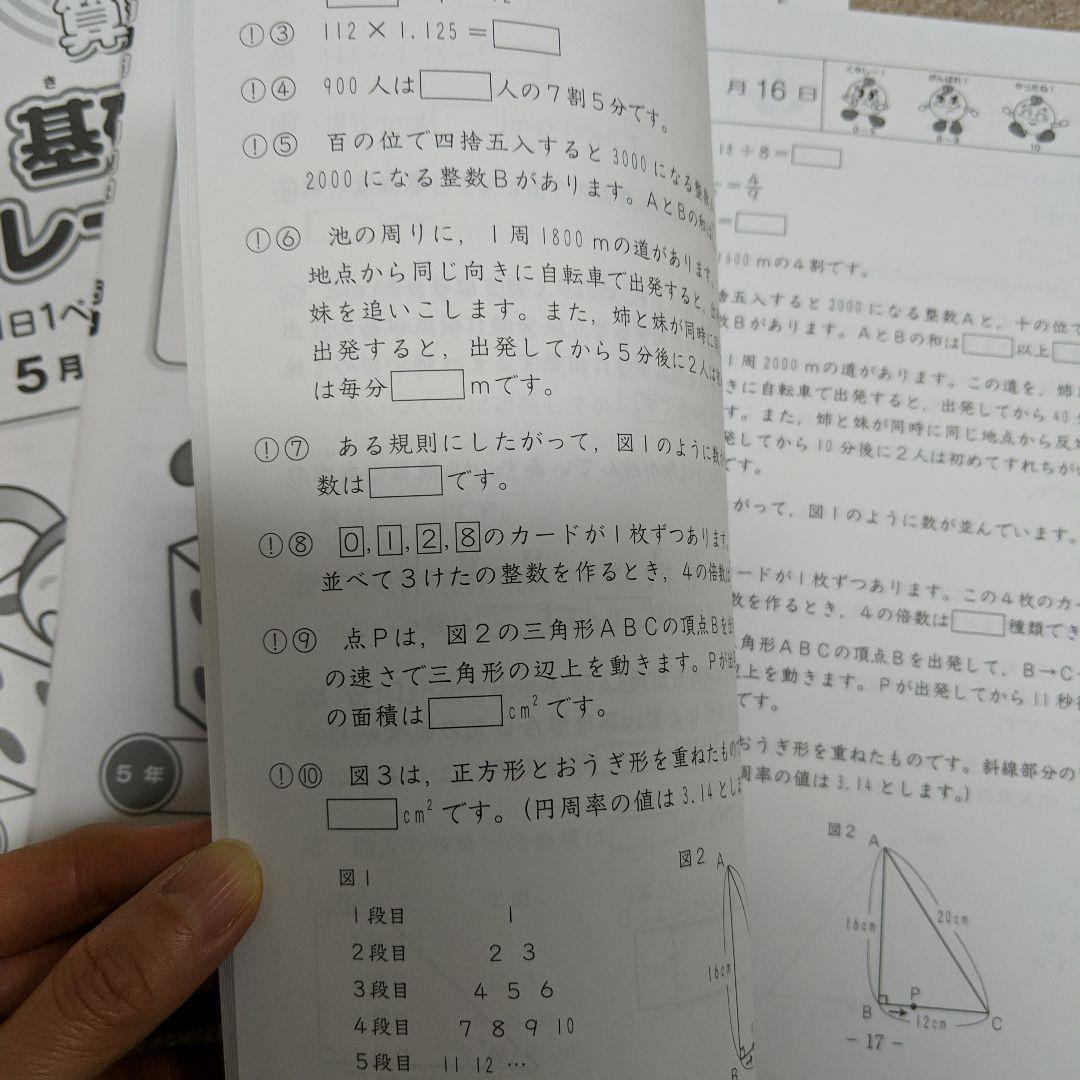 算
き
基
レー
1日1ペ
5月
5年
!③ 112×1.125=□
!④ 900人は□人の7割5分です。
!⑤ 百の位で四捨五入すると3000になる整数
2000になる整数Bがあります。AとBの和は
!⑥ 池の周りに，1周1800mの道があります。
地点から同じ向きに自転車で出発すると，
妹を追いこします。また，姉と妹が同時に同
出発すると，出発してから5分後に2人は初
は毎分□mです。
!⑦ ある規則にしたがって，図1のように数
数は□です。
!⑧ 0，1，2，8のカードが1枚ずつあります
並べて3けたの整数を作るとき，4の倍数は
!⑨ 点Pは，図2の三角形ABCの頂点Bを
の速さで三角形の辺上を動きます。Pが
の面積は□cm²です。
!⑩ 図3は，正方形とおうぎ形を重ねたもの
□cm²です。(円周率の値は3.14としま
図1
1段目 1
2段目 2 3
3段目 4 5 6
4段目 7 8 9 10
5段目 11 12 …
図2
A
16cm
B
月16日
くやしー！
がんばれ！
やったね！
10
18÷8=□
=4/9
=□
1600mの4割です。
捨五入すると2000になる整数Aと，十の位で
数Bがあります。AとBの和は□以上□
1周2000mの道があります。この道を，姉と
きに自転車で出発すると，出発してから40分
す。また，姉と妹が同時に同じ地点から反対
発してから10分後に2人は初めてすれちがい
です。
がって，図1のように数が並んでいます。
ードが1枚ずつあります。この4枚のカー
数を作るとき，4の倍数は□種類でき
角形ABCの頂点Bを出発して，B→C
辺上を動きます。Pが出発してから11秒後
です。
おうぎ形を重ねたものです。斜線部分の
周率の値は3.14とします。)
図2
A
16cm
20cm
B
P
12cm
C
- 17 -